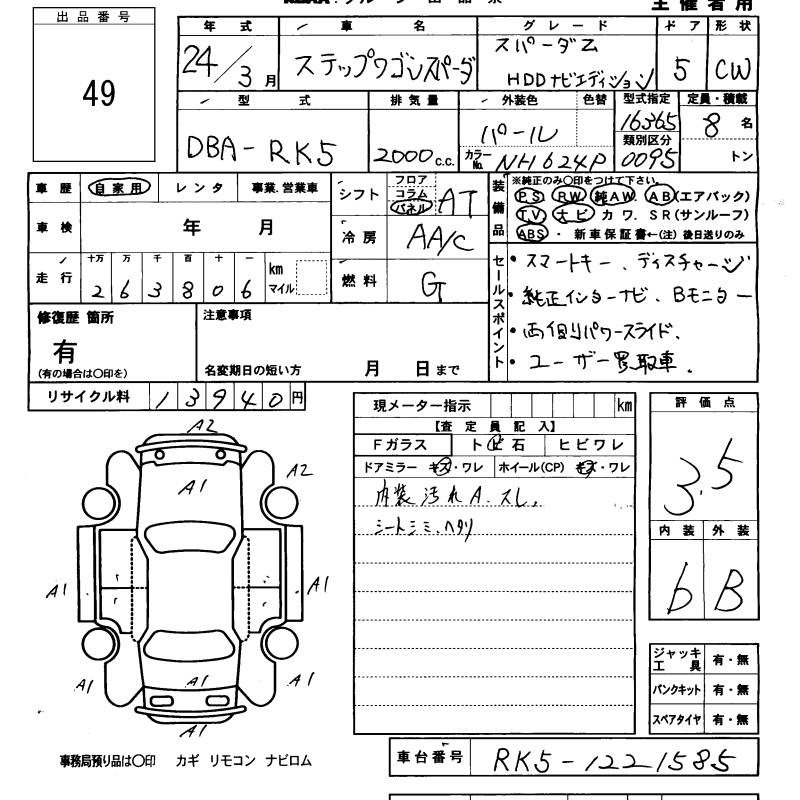 出品番号
49
主催者用
年式 車名 グレード ドア 形状
24/3月 ステップワゴンスパーダ スパーダZ HDDナビエディション 5 CW
型式 排気量 外装色 色替 型式指定 定員・積載
DBA-RK5 2000c.c. パール カラーNo. NH624P 16365 類別区分 0095 8名 トン
車歴 自家用 レンタ 事業.営業車
車検 年 月
走行 十万 万 千 百 十 一 km マイル
263806
シフト フロア コラム パネル AT
冷房 AA/C
燃料 G
装備品
※純正のみ〇印をつけて下さい。
PS RW 純AW. AB(エアバック)
TV ナビ カワ. SR(サンルーフ)
ABS ・ 新車保証書←(注) 後日送りのみ
セールスポイント
・スマートキー、ディスチャージ
・純正インターナビ、Bモニター
・両側パワースライド、
・ユーザー買取車.
修復歴 箇所
有
(有の場合は〇印を)
注意事項
名変期日の短い方 月 日まで
リサイクル料 13940円
現メーター指示 km
【査定員記入】
Fガラス トビ石 ヒビワレ
ドアミラー キズ・ワレ ホイール(CP) キズ・ワレ
内装汚れA.スレ.
シートシミ、ヘタリ
評価点
3.5
内装 外装
b B
ジャッキ工具 有・無
パンクキット 有・無
スペアタイヤ 有・無
A2
A1
A2
A1
A1
A1
A1
A1
A1
車台番号 RK5-1221585
事務局預り品は〇印 カギ リモコン ナビロム